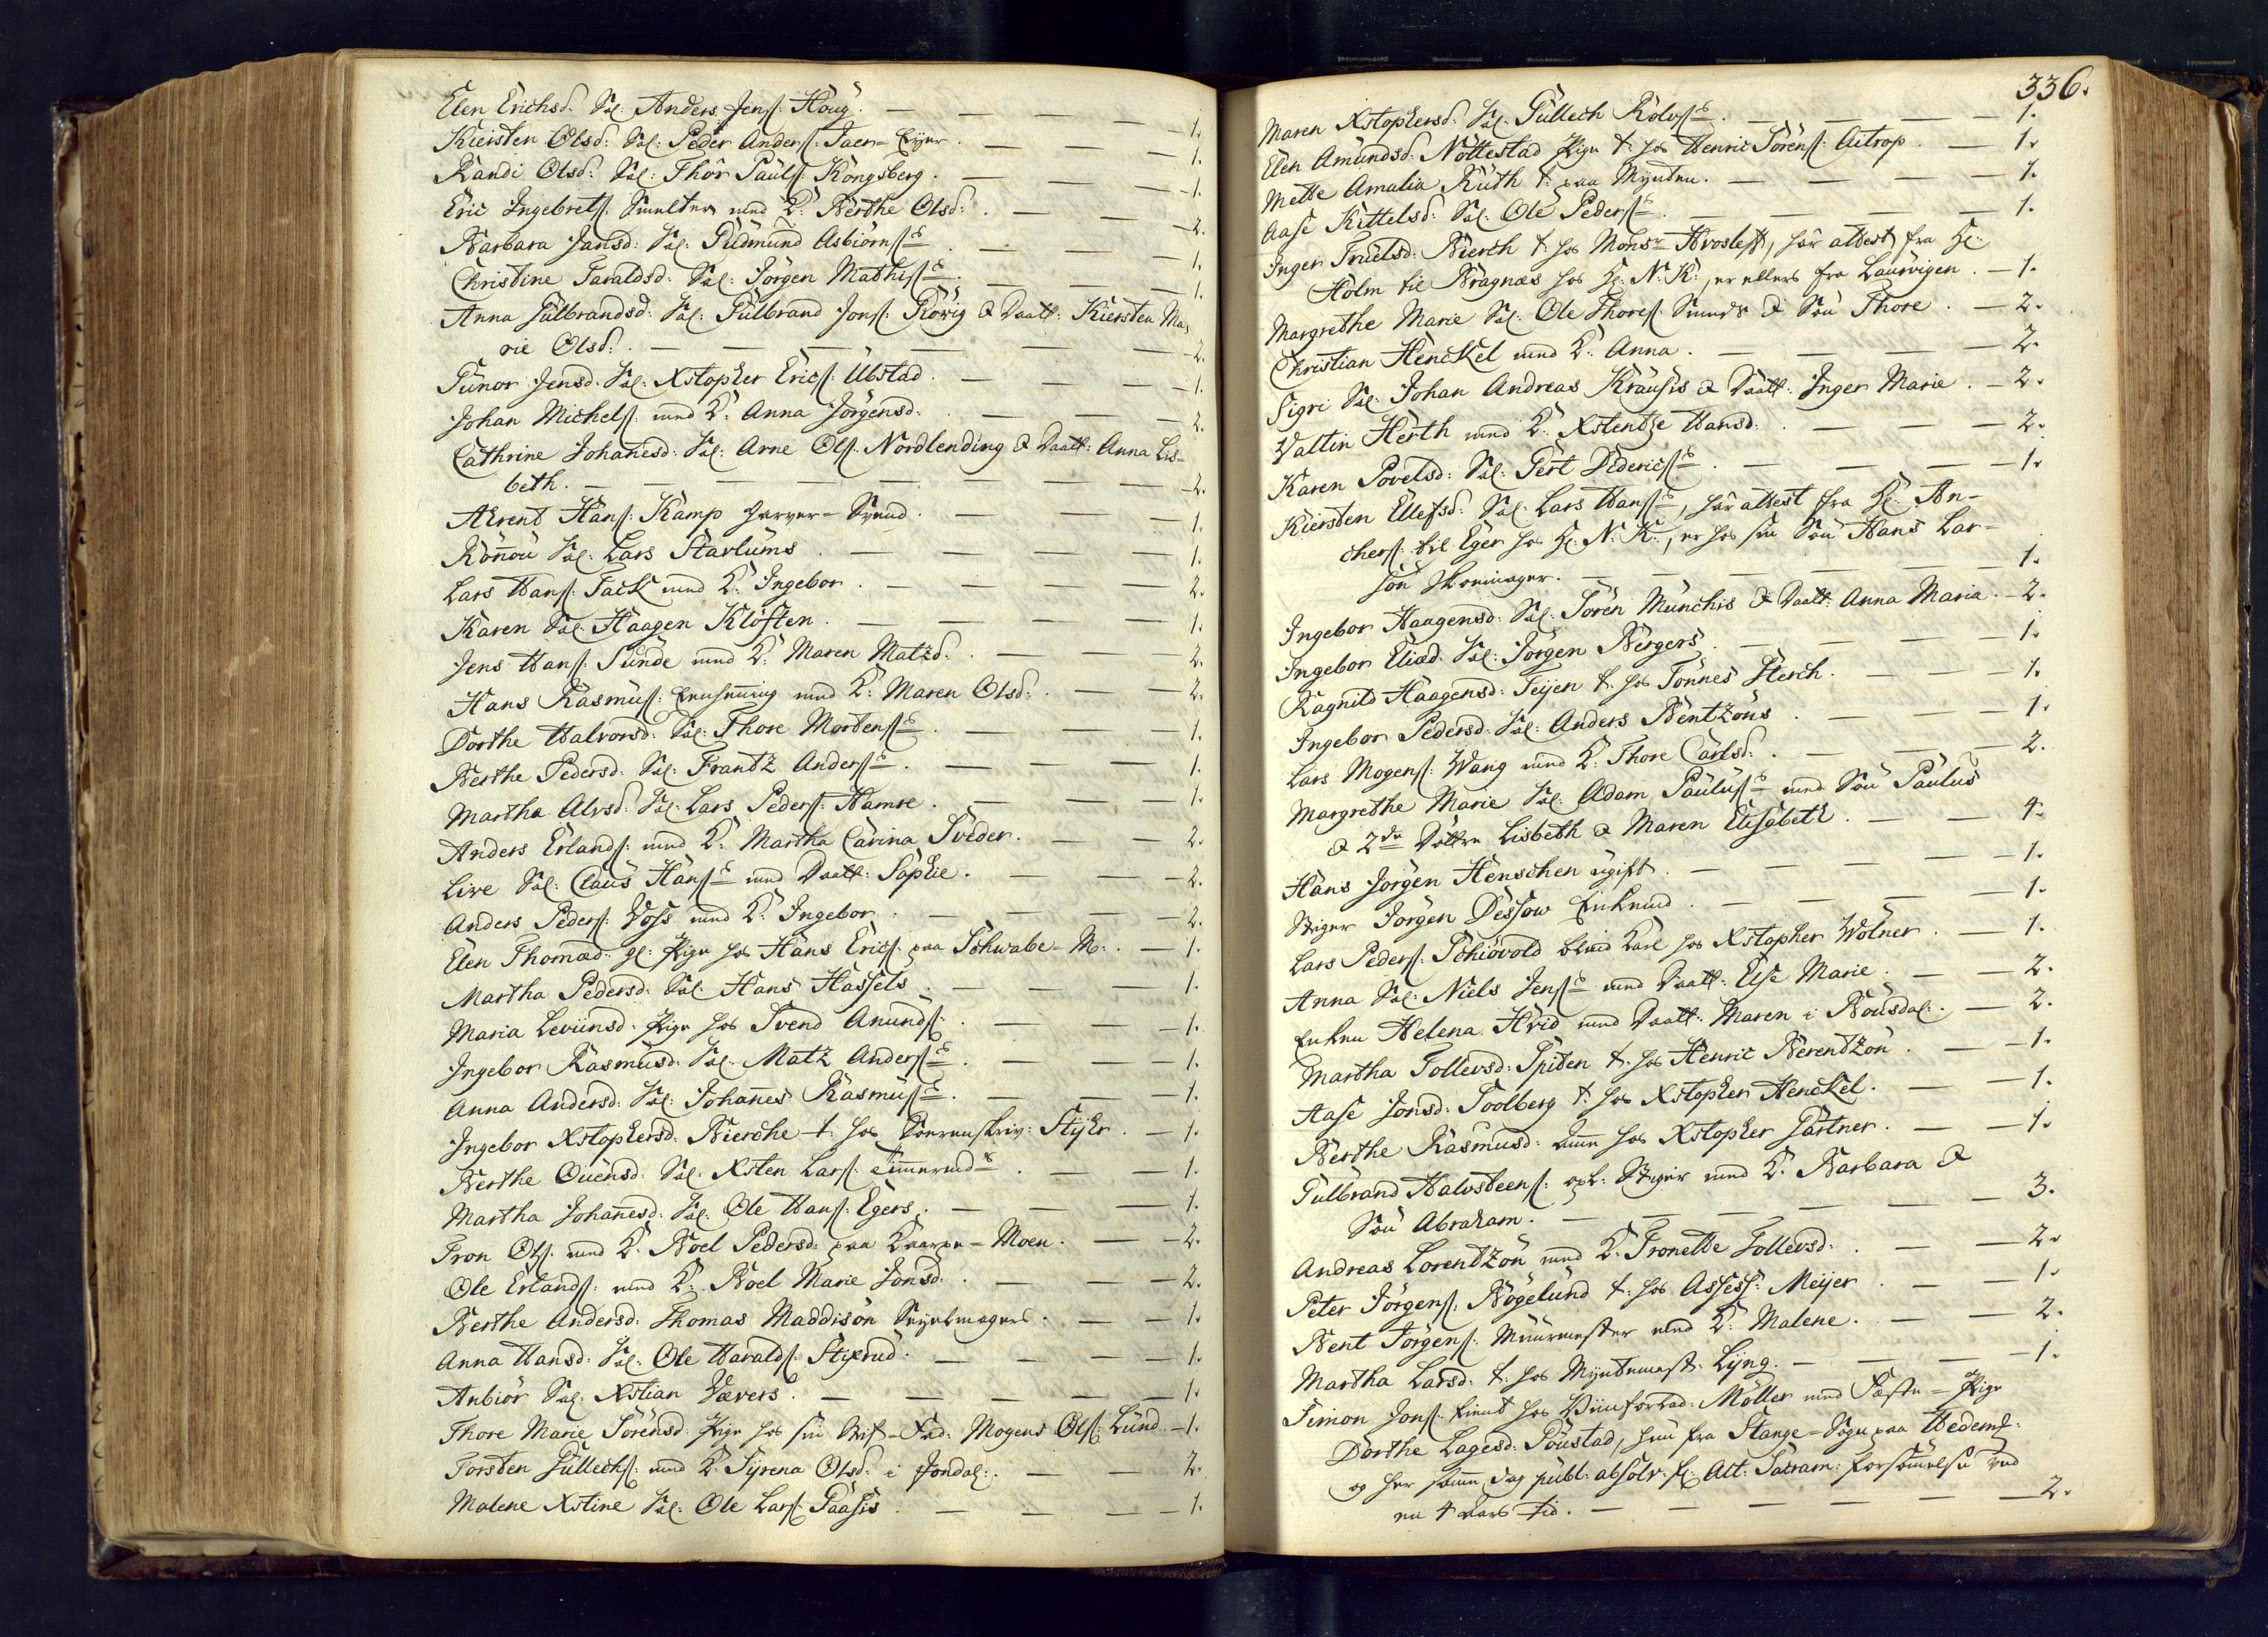 Elen Erichsd: Sal: Anders Jens: Houg. — 1.
Kiersten Olsd: Sal: Peder Anders: Jaer= — 1.
Randi Olsd: Sal: Thor Pauls: Kongsberg. — 1.
Eric Ingebrets: Smelter med K: Berthe Olsd: — 2.
Barbara Jansd: Sal: Gudmund Asbiørns: — 1.
Christine Taraldsd: Sal: Jørgen Mathis: — 1.
Anna Gulbrandsd: Sal: Gulbrand Jons: Rövig & Daatt: Kiersten Ma=
rie Olsd: — 2.
Gunor Jensd: Sal: Xstopher Erics: Ubstad. — 1.
Johan Michels: med K: Anna Jörgensd: — 2.
Cathrine Johanesd: Sal: Arne Ols: Nordlending & Daatt: Anna Lis=
beth. — 2.
Ahrent Hans: Kamp garver=Svend. — 1.
Rönnou Sal: Lars Starlums — 1.
Lars Hans: Fack med K: Ingebor. — 2.
Karen Sal: Haagen Klöften. — 1.
Jens Hans: Sunde med K: Maren Matzd. — 2.
Hans Rasmus: med K: Maren Olsd: — 2.
Dorthe Halvorsd: Sal: Thore Mortens: — 1.
Berthe Pedersd: Sal: Frantz Anders: — 1.
Martha Alvsd: Sal: Lars Peders: Hamre. — 1.
Anders Erlands: med K: Martha Carina Sveder. — 2.
Live Sal: Claus Hans: med Daatt: Sophie. — 2.
Anders Peders: Voss med K: Ingebor. — 2.
Elen Thomæd: gl: Pige hos Hans Erics: paa Schwabe=M: — 1.
Martha Pedersd: Sal: Hans Hassels. — 1.
Maria Leviinsd: Pige hos Svend Anunds: — 1.
Ingebor Rasmusd: Sal: Matz Anders: — 1.
Anna Andersd: Sal: Johanes Rasmus: — 1.
Ingebor Xstophersd: Bierche t: hos Soerenskriv: Stijhr. — 1.
Berthe Ouensd: Sal: Xsten Lars: Timermd: — 1.
Martha Johanesd: Sal: Ole Hans: Egers. — 1.
Tron Ols: med K: Boel Pedersd: paa =Moen. — 2.
Ole Erlands: med K: Boel Marie Jonsd: — 2.
Berthe Andersd: Thomas Maddison Seyelmagers. — 1.
Anna Hansd: Sal: Ole Haralds: Stixrud. — 1.
Anbiör Sal: Xstian Vævers. — 1.
Thore Marie Sörensd: Pige hos sin Stif=Fad: Mogens Ols: Lund. — 1.
Torsten Gullechs: med K: Syrena Olsd: i Jondal: — 2.
Malene Xstine Sal: Ole Lars: Paasis — 1.
336.
Maren Xstophersd: Sal: Gullech Rolvs: — 1.
Elen Amundsd: Nöttestad Pige t: hos Henric Sörens: Aitrop. — 1.
Mette Amalia Ruth t: paa Mynten. — 1.
Aase Kittelsd: Sal: Ole Peders: — 1.
Inger Truelsd: Bierch t: hos Monsr: Hvoslef, har attest fra H:
Holm til Bragnæs hos H: N: K:, er ellers fra Laurvigen. — 1.
Margrethe Marie Sal: Ole Thores: Smeds & Søn Thore. — 2.
Christian Henckel med K: Anna. — 2.
Sigri Sal: Johan Andreas Krausis & Daatt: Inger Marie. — 2.
Valtin Herth med K: Xstentze Hansd: — 2.
Karen Povelsd: Sal: Gert Dideriс: — 1.
Kiersten Ellefsd: Sal: Lars Hans:, har attest fra H: An=
chers: til Eger hos H: N: K:, er hos sin Søn Hans Lar=
søn Skomager. — 1.
Ingebor Haagensd: Sal: Sören Munchis & Daatt: Anna Maria. — 2.
Ingebor Eliæd: Sal: Jörgen Bergers. — 1.
Ragnild Haagensd: Teijen t: hos Tönnes Sterch. — 1.
Ingebor Pedersd: Sal: Anders Bentzöns. — 1.
Lars Mogens: Wang med K: Thore Carlsd: — 2.
Margrethe Marie Sal: Adam Paulus: med Søn Paulus
& 2de Döttre Lisbeth & Maren Elisabeth. — 4.
Hans Jörgen Henschen ugift. — 1.
Stiger Jörgen Dessow Enkemd. — 1.
Lars Peders: Schiövold blind Karl hos Xstopher Wölner. — 1.
Anna Sal: Niels Jens: med Daatt: Else Marie. — 2.
Enken Helena Hvid med Daatt: Maren i Bousdal: — 2.
Martha Tollevsd: Spiten t: hos Henric Berentzön. — 1.
Aase Jonsd: Soolberg t: hos Xstopher Henckel. — 1.
Berthe Rasmusd: Amme hos Xstopher Gärtner. — 1.
Gulbrand Halvsteens: opl: Stiger med K: Barbara &
Søn Abraham. — 3.
Andreas Lorentzön med K: Tronette Tollevsd: — 2.
Peter Jörgens: Bögelund t: hos Assess: Meijer — 1.
Bent Jörgens: Muurmester med K: Malene. — 2.
Martha Larsd: t: hos Myntmest: Lijng. — 1.
Simon Jons: tient hos Viinforvad: Möller med Fæste=Pige
Dorthe Lagesd: Soustad, hun fra Stange=Sogn paa Hedem:
og her samme dag publ: absolv: f: Alt: Sacram: forsömmelse ved
en 4 Aars tid. — 2.